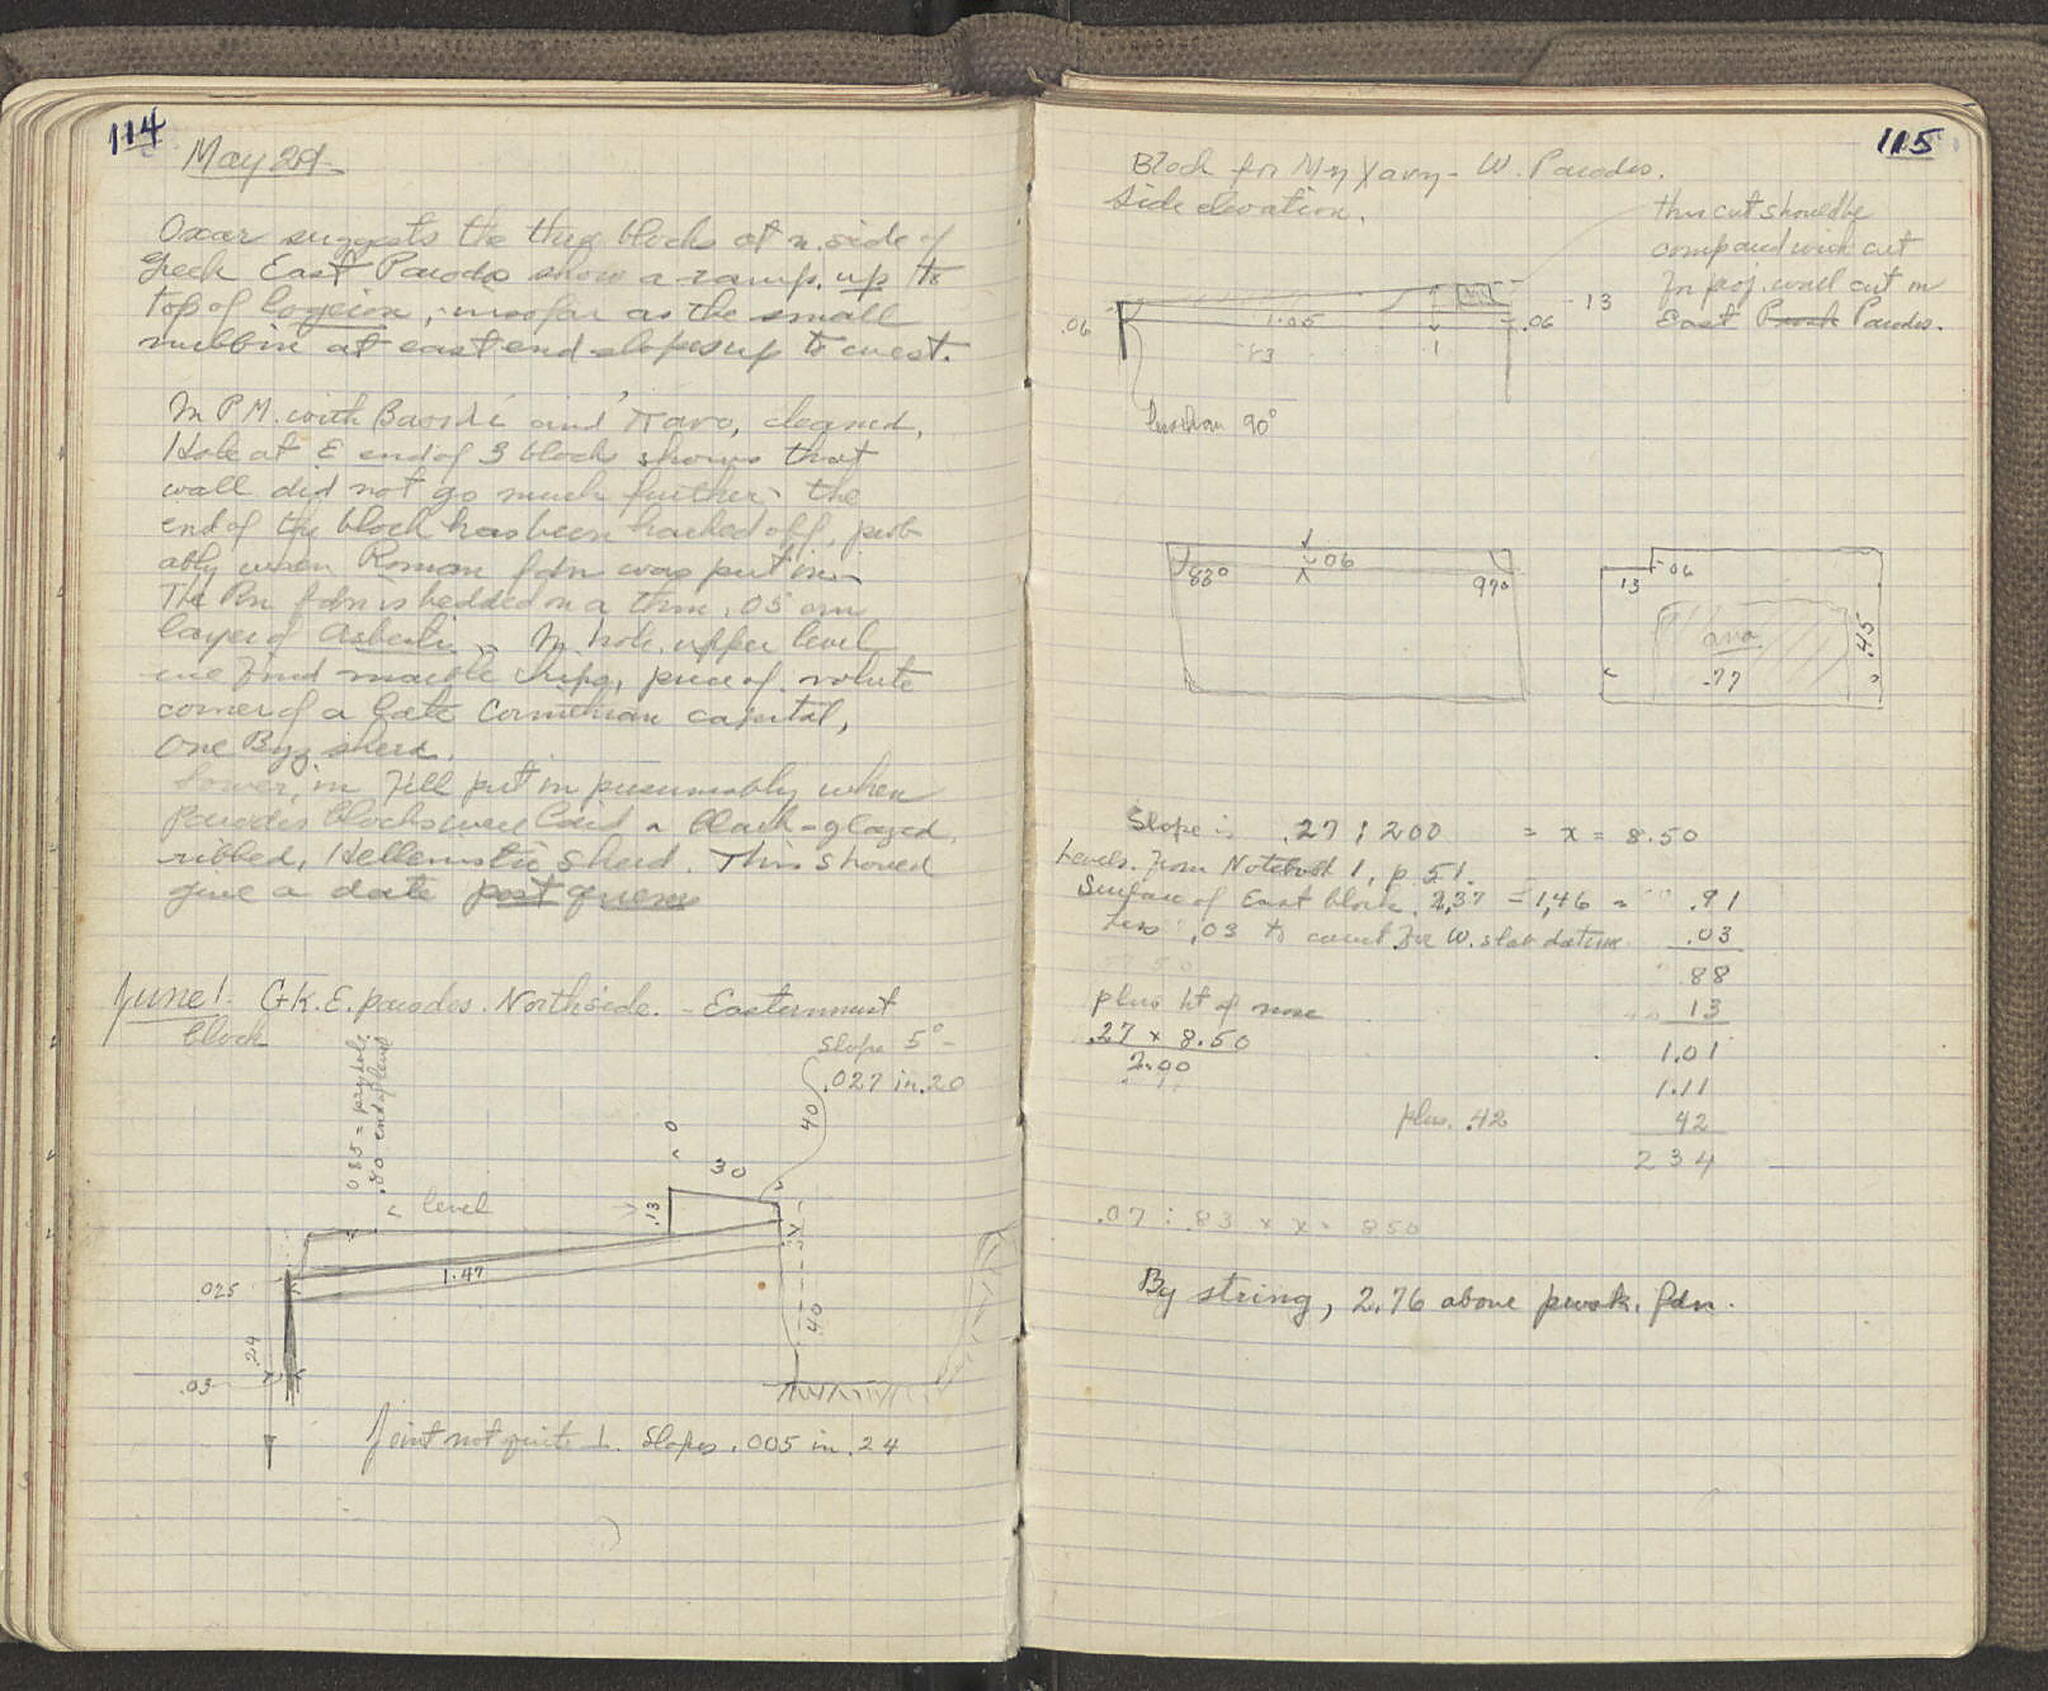 114
May 29
Oscar suggests the three blocks at n. side of
Greek East Parodos show a ramp, up to
top of logeion, insofar as the small
nubbin at east end slopes up to west.
In P.M. with and cleaned,
Hole at E end of 3 block shows that
wall did not go much further, the
end of the block has been hacked off, prob
ably when Roman fdn was put in.
The Rm fdn is bedded on a thin, .05 cm
layer of In hole, upper level
we find marble chips, piece of volute
corner of a late Corinthian capital,
One Byz. sherd.
Lower, in fill put in presumably when
Parodos blocks were laid a black-glazed,
ribbed, Hellenistic sherd. This should
give a date post quem
June 1. Gk. E. parodos. North side. - Easternmost
block
slope 5° -
.027 in .20
085 = pry hole
.80 end of level
0
40
30
level
.13
1.47
.025
.24
.03
.40
Joint not quite ⊥. Slopes .005 in .24
115
Block for - W. Parodos.
Side elevation.
this cut should be
compared with cut
in proj. wall cut in
East Parodos.
13
.06
1.05
.06
83
1
less than 90°
.06
97°
13
06
.45
.77
Slope is .27 : 200 = x = 8.50
Levels. from Notebook 1, p. 51.
Surface of East block. 2,37 - 1,46 = .91
less .03 to count for W. slab datum .03
88
plus ht of nose 13
.27 x 8.50 1.01
2.00
1.11
plus .42 42
2 3 4
.07 : .83 x x = 850
By string, 2.76 above prosk. fdn.